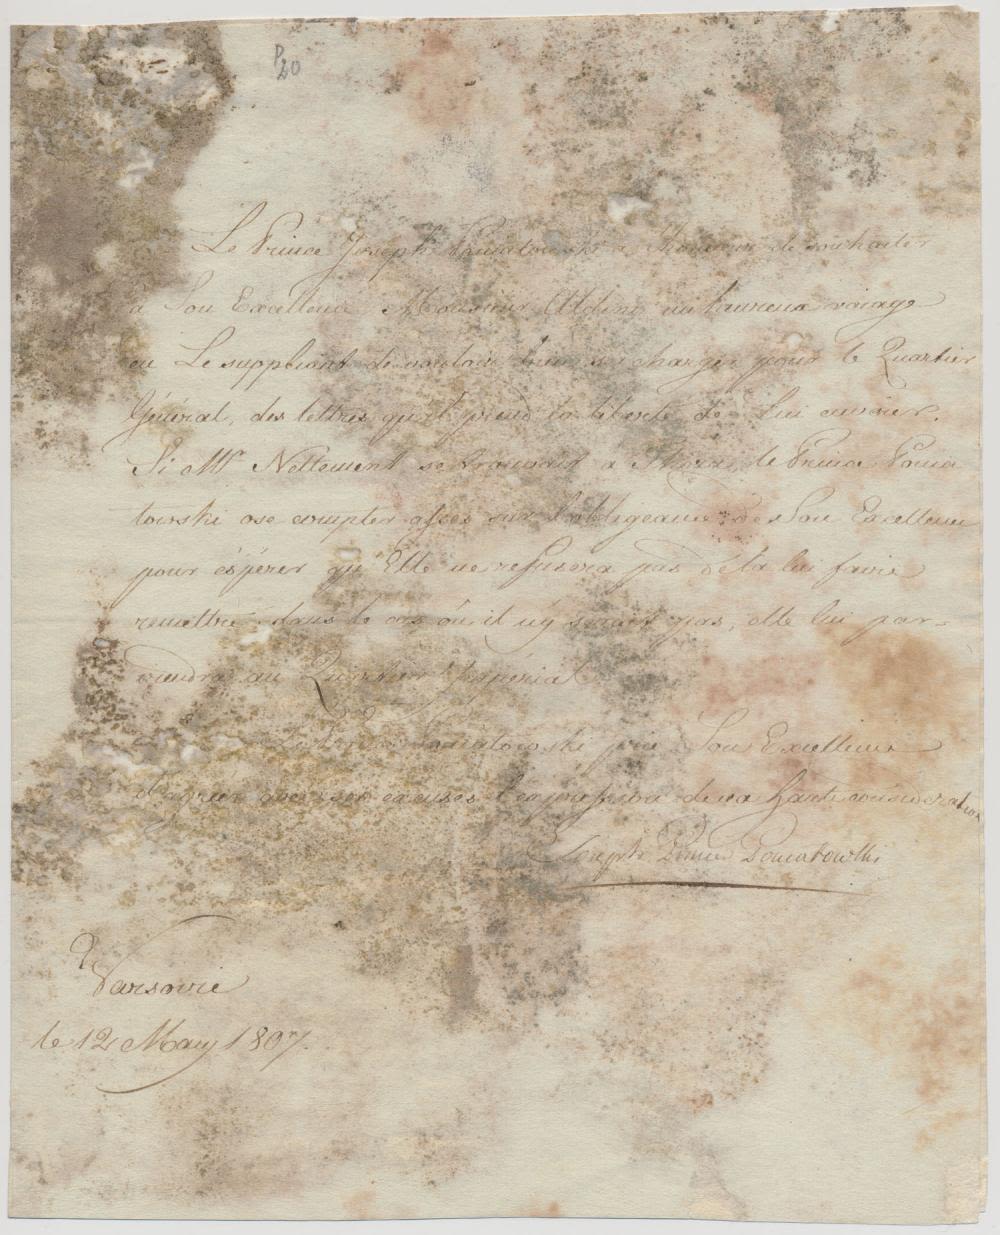 P
20
Le Prince Joseph Poniatowski a l'honneur de souhaiter
à Son Excellence Monsieur Aldini un heureux voiage
en Le suppliant de vouloir bien se charger pour le Quartier
Général, des lettres qu'il prend la liberté de Lui envoier.
Si Mr Nettement se trouvait à le Prince Ponia
towski ose compter assés sur l'obligeance de Son Excellence
pour éspérer qu'Elle ne refusera pas de la lui faire
remettre. dans le cas où il n'y serait pas, elle lui par=
viendra au Quartier Impérial.
Le Prince Poniatowski prie Son Excellence
d'agréer avec ses excuses l'expression de sa haute consideration
Joseph Prince Poniatowski
Varsovie
le 12 May 1807.